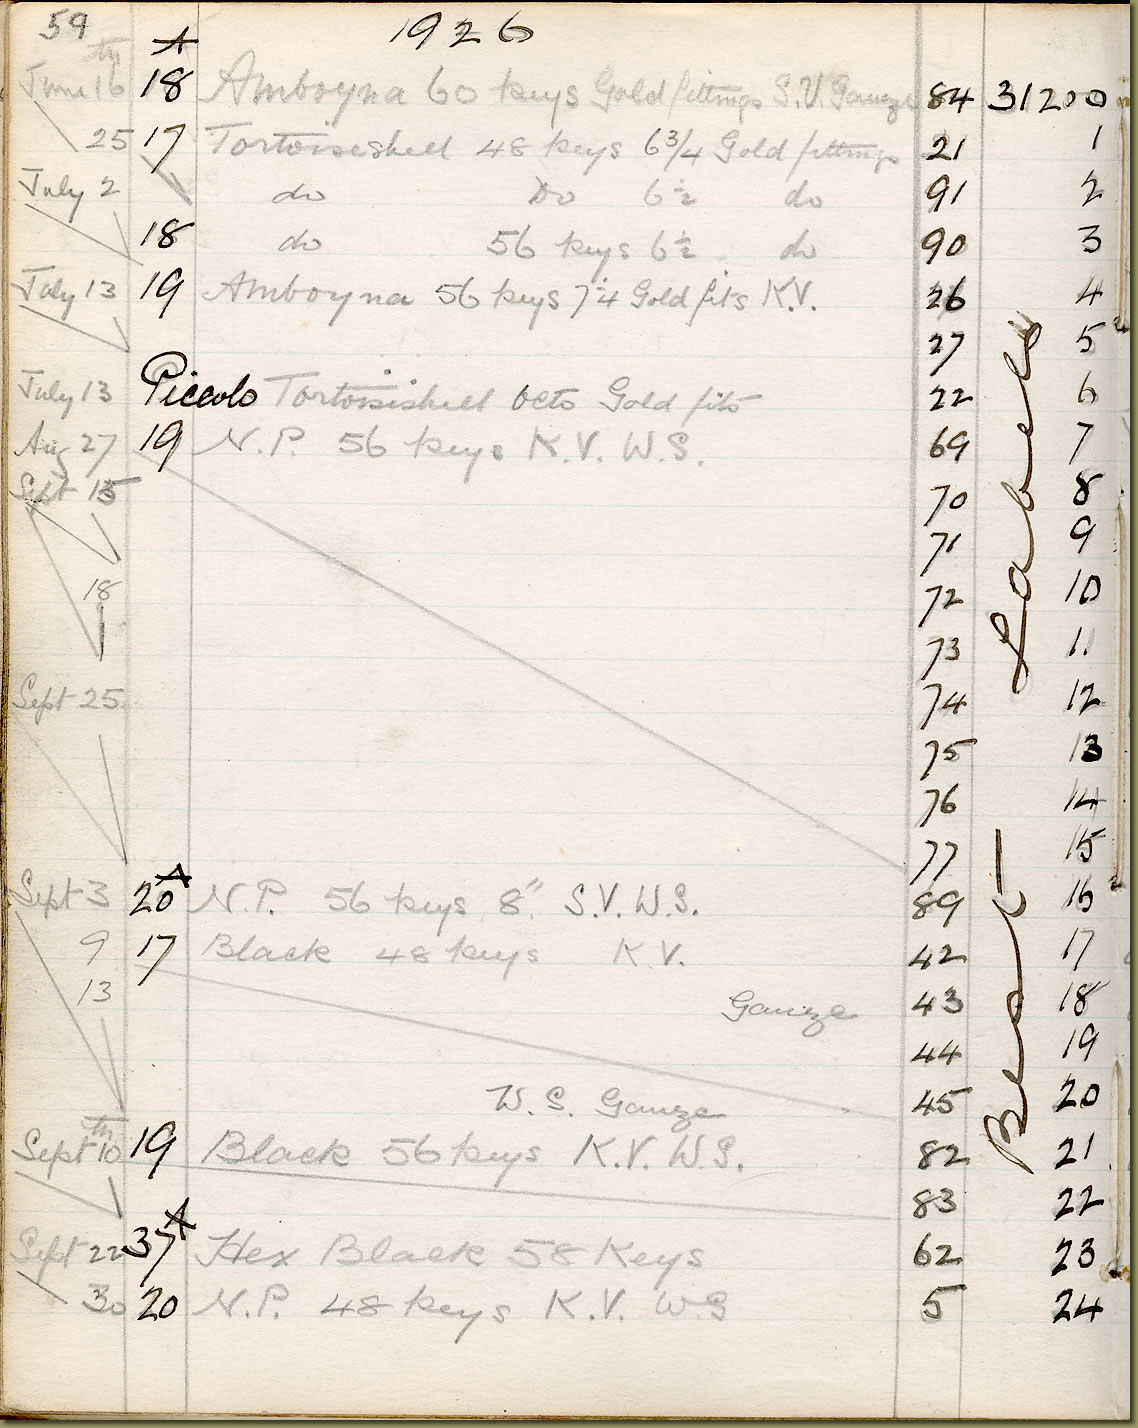 59 1926
A
June 16th 18 Amboyna 60 keys Gold fittings S.V. Gauze 84 31200
25 17 Tortoiseshell 48 keys 6 3/4 Gold fittings 21 1
July 2 do Do 6 1/2 do 91 2
18 do 56 keys 6 1/2 do 90 3
July 13 19 Amboyna 56 keys 7 1/4 Gold fits K.V. 26 4
27 5
July 13 Piccolo Tortoiseshell Octo Gold fits 22 6
Aug 27 19 N.P. 56 keys K.V. W.S. 69 7
Sept 15 70 8
71 9
18 72 10
73 11
Sept 25 74 12
75 13
76 14
77 15
Sept 3 20 A N.P. 56 keys 8" S.V. W.S. 89 16
9 17 Black 48 keys K.V. 42 17
13 Gauze 43 18
44 19
W.S. Gauze 45 20
Sept 10th 19 Black 56 keys K.V. W.S. 82 21
83 22
Sept 22 37 A Hex Black 58 Keys 62 23
30 20 N.P. 48 keys K.V. W.S 5 24
Best Labels